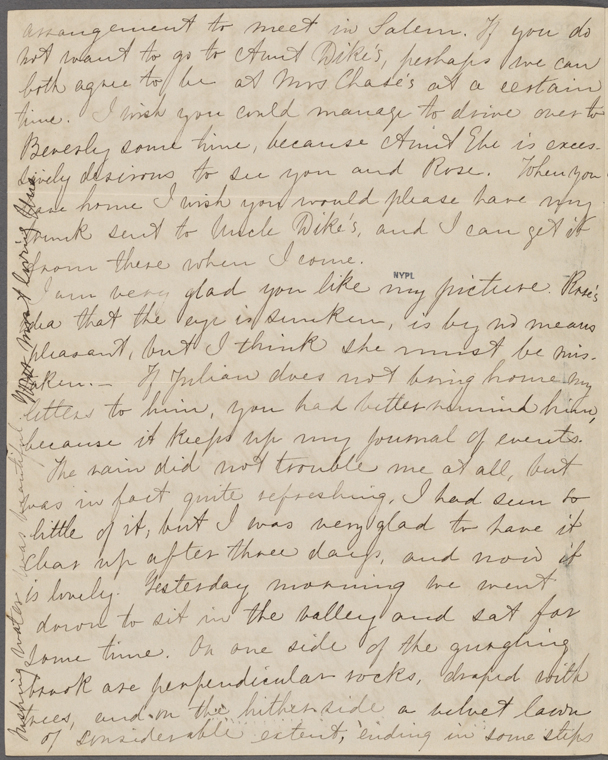 arrangement to meet in Salem. If you do
not want to go to Aunt Dike's, perhaps we can
both agree to be at Mrs Chase's at a certain
time. I wish you could manage to drive over to
Beverly some time, because Aunt Ebe is exces-
sively desirous to see you and Rose. When you
are home I wish you would please have my
trunk sent to Uncle Dike's, and I can get it
from there when I come.
NYPL
I am very glad you like my picture. Rose's
idea that the eye is sunken, is by no means
pleasant, but I think she must be mis-
taken.— If Julian does not bring home my
letters to him, you had better remind him,
because it keeps up my journal of events.
The rain did not trouble me at all, but
was in fact quite refreshing, I had seen so
little of it; but I was very glad to have it
clear up after three days, and now it
is lovely. Yesterday morning we went
down to sit in the valley and sat for
some time. On one side of the gurgling
brook are perpendicular rocks, draped with
trees, and on the hither side a velvet lawn
of considerable extent, ending in some steps
rushing water was beautiful. Your most loving Una.